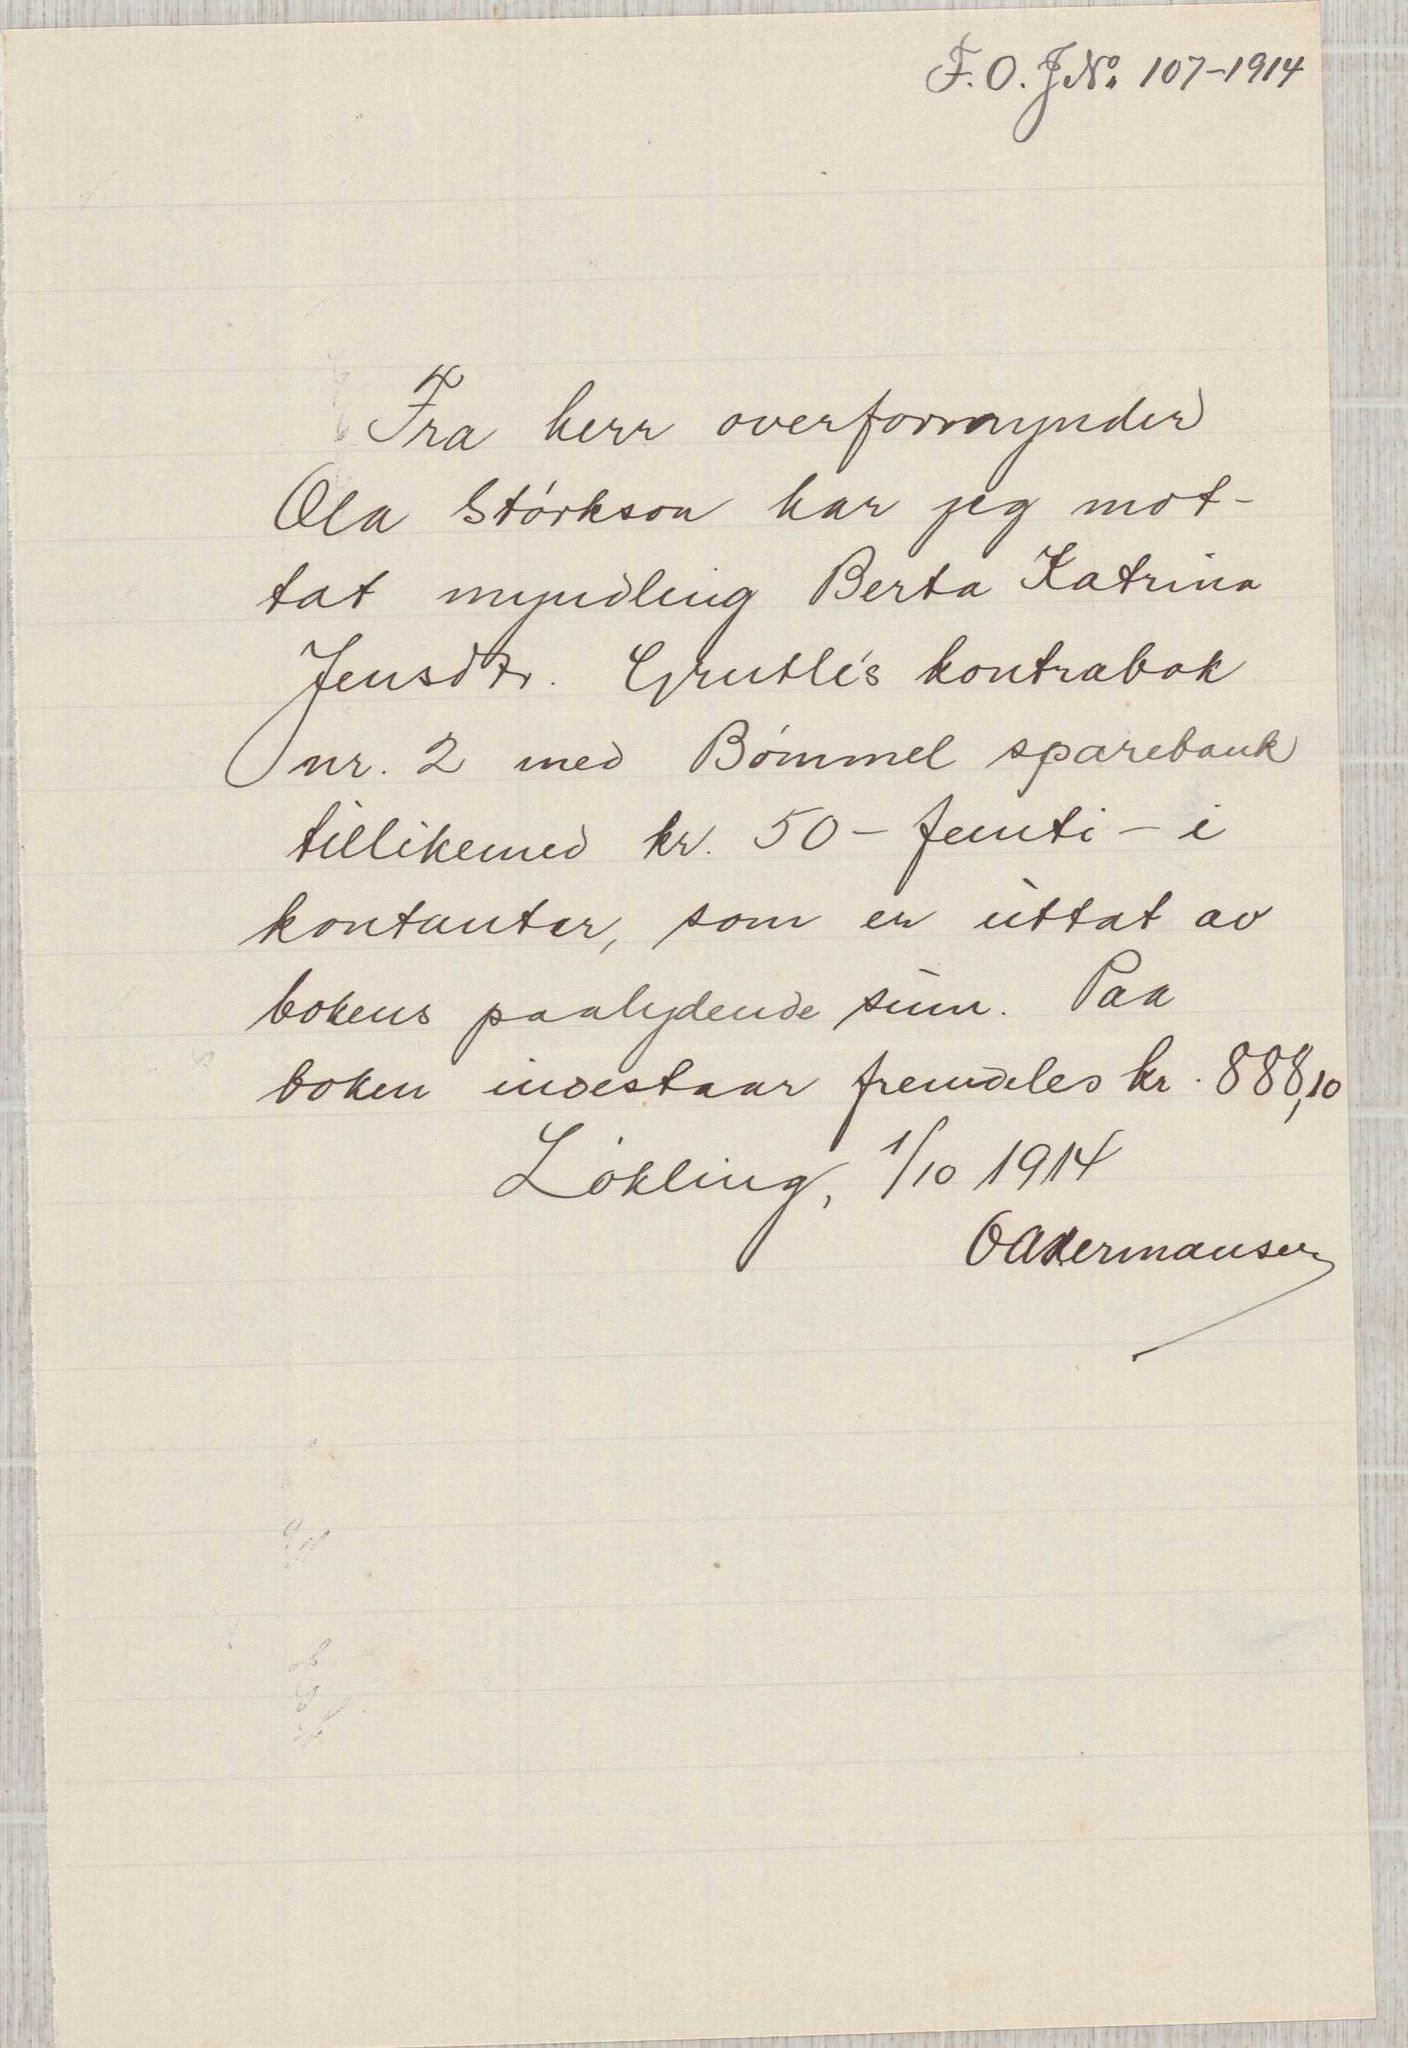 F. O. J No. 107-1914
Fra herr overformynder
Ola Størkson har jeg mot-
tat myndling Berta Katrina
Jensdtr. Grutle's kontrabok
nr. 2 med Bømmel sparebank
tillikemed kr. 50 - femti - i
kontanter, som er uttat av
bokens paalydende sum. Paa
boken indestaar fremdeles kr. 888,10
Løkling, 1/10 1914